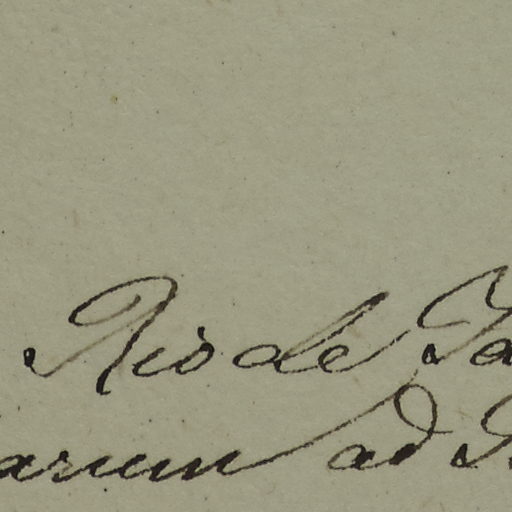 Rio de Ja
arum ad